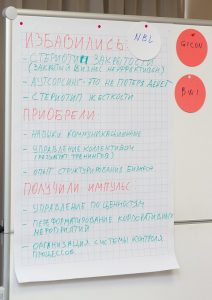 ИЗБАВИЛИСЬ:
NBL
QICON
- СТЕРЕОТИП ЗАКРЫТОСТИ
(ЗАКРЫТЫЙ БИЗНЕС НЕЭФФЕКТИВЕН)
- АУТСОРСИНГ - ЭТО НЕ ПОТЕРЯ ДЕНЕГ
- СТЕРЕОТИП ЖЕСТКОСТИ
ПРИОБРЕЛИ
- НАВЫКИ КОММУНИКАЦИОННЫЕ
- УПРАВЛЕНИЕ КОЛЛЕКТИВОМ
(РЕЗУЛЬТАТ ТРЕНИНГОВ)
- ОПЫТ СТРУКТУРИРОВАНИЯ БИЗНЕСА
ПОЛУЧИЛИ ИМПУЛЬС
- УПРАВЛЕНИЕ ПО ЦЕННОСТЯМ
- ПЕРЕФОРМАТИРОВАНИЕ КОРПОРАТИВНЫХ
МЕРОПРИЯТИЙ
- ОРГАНИЗАЦИЯ СИСТЕМЫ КОНТРОЛЯ
ПРОЦЕССОВ